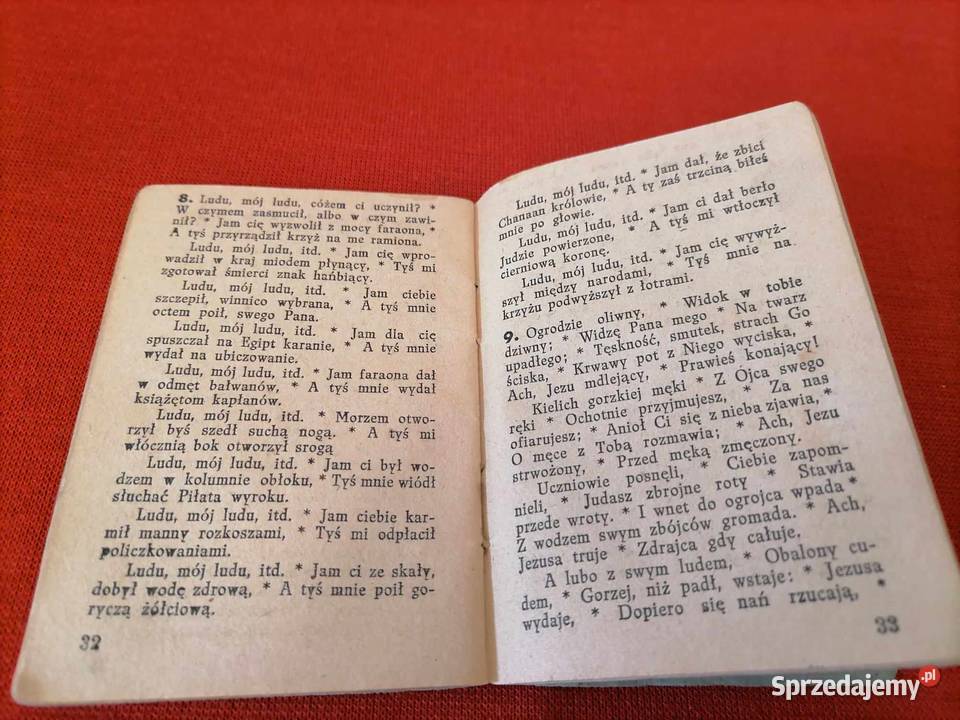 8. Ludu, mój ludu, cóżem ci uczynił? *
W czymem zasmucił, albo w czym zawi-
nił? * Jam cię wyzwolił z mocy faraona, *
A tyś przyrządził krzyż na me ramiona.
Ludu, mój ludu, itd. * Jam cię wpro-
wadził w kraj miodem płynący, * Tyś mi
zgotował śmierci znak hańbiący.
Ludu, mój ludu, itd. * Jam ciebie
szczepił, winnico wybrana, * A tyś mnie
octem poił, swego Pana.
Ludu, mój ludu, itd. * Jam dla cię
spuszczał na Egipt karanie, * A tyś mnie
wydał na ubiczowanie.
Ludu, mój ludu, itd. * Jam faraona dał
w odmęt bałwanów, * A tyś mnie wydał
książętom kapłanów.
Ludu, mój ludu, itd. * Morzem otwo-
rzył byś szedł suchą nogą. * A tyś mi
włócznią bok otworzył srogą
Ludu, mój ludu, itd. * Jam ci był wo-
dzem w kolumnie obłoku, * Tyś mnie wiódł
słuchać Piłata wyroku.
Ludu, mój ludu, itd. * Jam ciebie kar-
mił manny rozkoszami, * Tyś mi odpłacił
policzkowaniami.
Ludu, mój ludu, itd. * Jam ci ze skały,
dobył wodę zdrową, * A tyś mnie poił go-
ryczą żółciową.
32
Ludu, mój ludu, itd. * Jam dał, że zbici
Chanaan królowie, * A ty zaś trzciną biłeś
mnie po głowie.
Ludu, mój ludu, itd. * Jam ci dał berło
Judzie powierzone, * A tyś mi wtłoczył
cierniową koronę.
Ludu, mój ludu, itd. * Jam cię wywyż-
szył między narodami, * Tyś mnie na
krzyżu podwyższył z łotrami.
9. Ogrodzie oliwny, * Widok w tobie
dziwny; * Widzę Pana mego * Na twarz
upadłego; * Tęskność, smutek, strach Go
ściska, * Krwawy pot z Niego wyciska, *
Ach, Jezu mdlejący, * Prawieś konający!
Kielich gorzkiej męki * Z Ojca swego
ręki * Ochotnie przyjmujesz, * Za nas
ofiarujesz; * Anioł Ci się z nieba zjawia, *
O męce z Tobą rozmawia; * Ach, Jezu
strwożony, * Przed męką zmęczony.
Uczniowie posnęli, * Ciebie zapom-
nieli, * Judasz zbrojne roty * Stawia
przede wroty. * I wnet do ogrojca wpada *
Z wodzem swym zbójców gromada. * Ach,
Jezusa truje * Zdrajca gdy całuje,
A lubo z swym ludem, * Obalony cu-
dem, * Gorzej, niż padł, wstaje: * Jezusa
wydaje, * Dopiero się nań rzucają, *
33
Sprzedajemy.pl